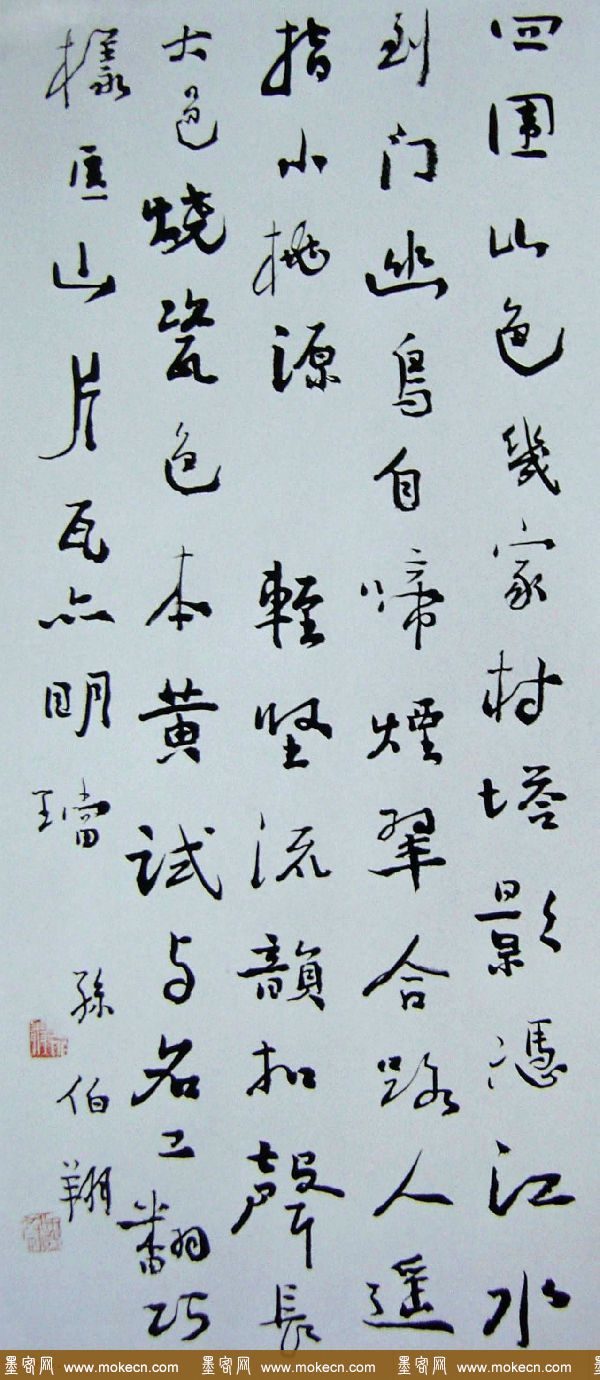 四圍山色幾家村塔影憑江水
到门幽鸟自啼煙翠合路人遥
指小桃源 輕坚流韻扣聲長
大邑烧瓷色本黄試与名工翻巧
樣匡山片瓦亦明璫
孫伯翔
墨客网 www.mokecn.com 墨客网 www.mokecn.com 墨客网 www.mokecn.com